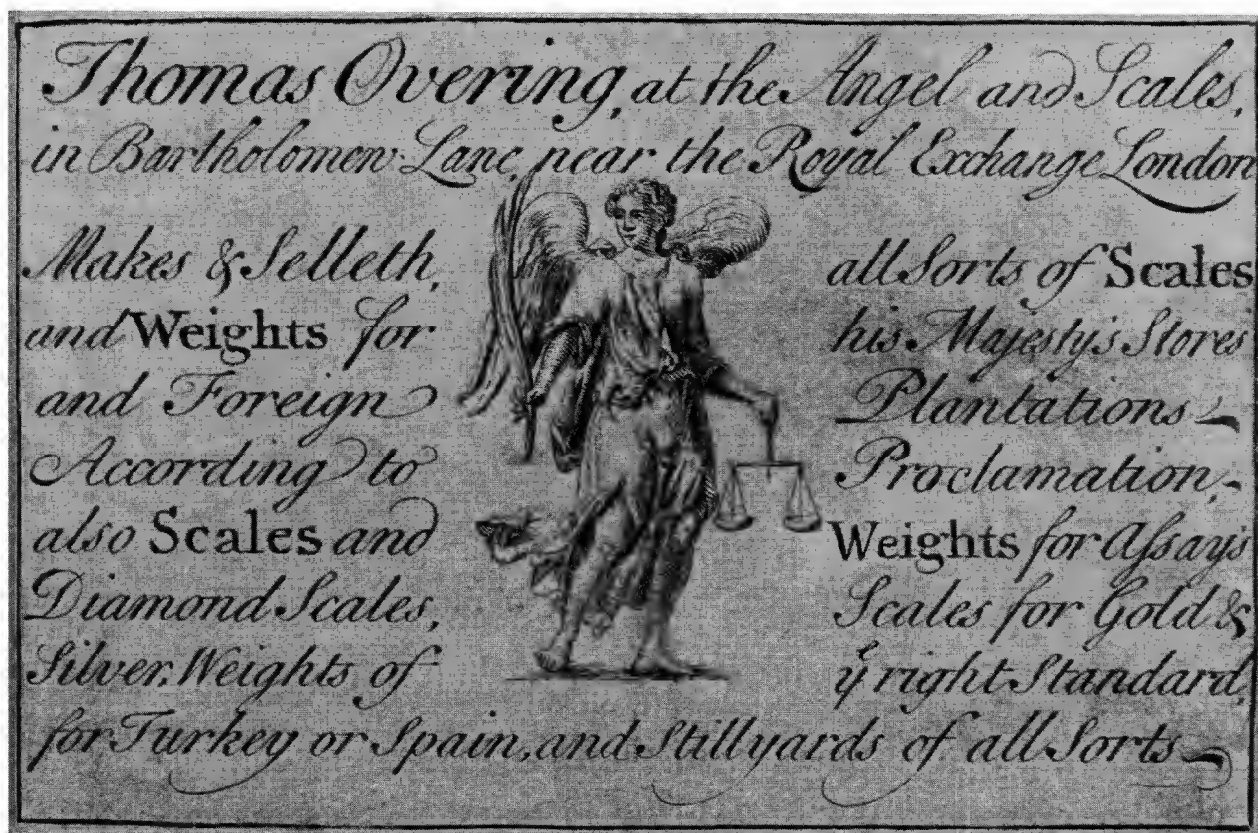 Thomas Overing, at the Angel and Scales,
in Bartholomew Lane, near the Royal Exchange London
Makes & Selleth, all Sorts of Scales
and Weights for his Majesty's Stores
and Foreign Plantations
According to Proclamation,
also Scales and Weights for Aſsays
Diamond Scales, Scales for Gold &
Silver, Weights of yᵉ right Standard,
for Turkey or Spain, and Stillyards of all Sorts